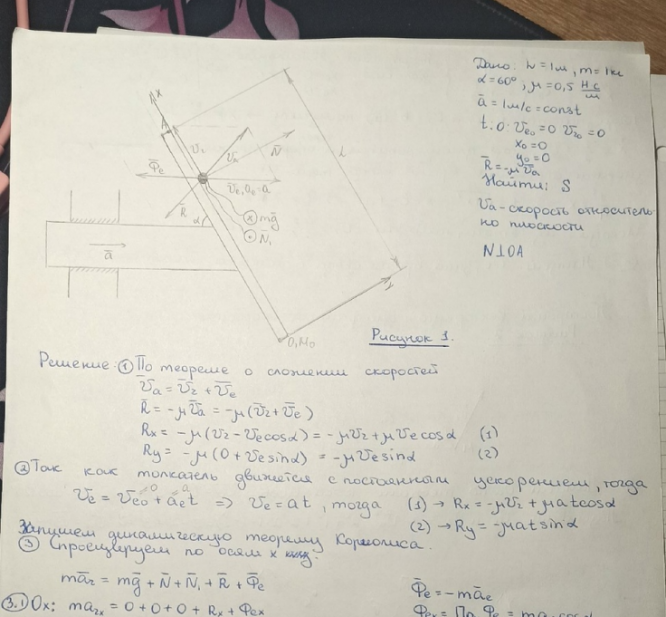 Дано: L = 1м, m = 1кг
α = 60°, μ = 0,5 Н·с/м
ā = 1м/с = const
t. O: v̄e₀ = 0 v̄r₀ = 0
x₀ = 0
y₀ = 0
R̄ = -μv̄a
Найти: S
va - скорость относитель-
но плоскости
N ⊥ OA
x
A
vr
va
N̄
L
Φ̄e
v̄e, ae = a
R̄
α
mg̅
N̄₁
ā
y
O, M₀
Рисунок 1.
Решение: ① По теореме о сложении скоростей
v̄a = v̄r + v̄e
R̄ = -μv̄a = -μ(v̄r + v̄e)
Rx = -μ(vr - ve cosα) = -μvr + μve cosα (1)
Ry = -μ(0 + ve sinα) = -μve sinα (2)
② Так как толкатель движется с постоянным ускорением, тогда
v̄e = v̄e₀ + āe t ⇒ ve = at, тогда (1) → Rx = -μvr + μat cosα
(2) → Ry = -μat sinα
Запишем динамическую теорему Кориолиса.
③ Спроецируем по осям x
mār = mg̅ + N̄ + N̄₁ + R̄ + Φ̄e
Φ̄e = -māe
3.1) Ox: marx = 0 + 0 + 0 + Rx + Φex